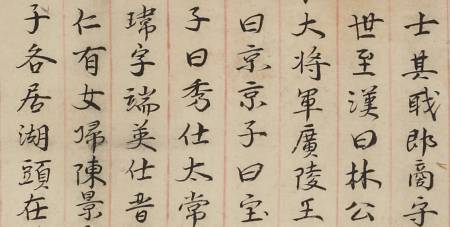 士其戢郎商字
世至漢曰林公
大将軍廣陵王
曰京京子曰宝
子曰秀仕太常
瑋字端英仕晋
仁有女歸陳景
子各居湖頭在